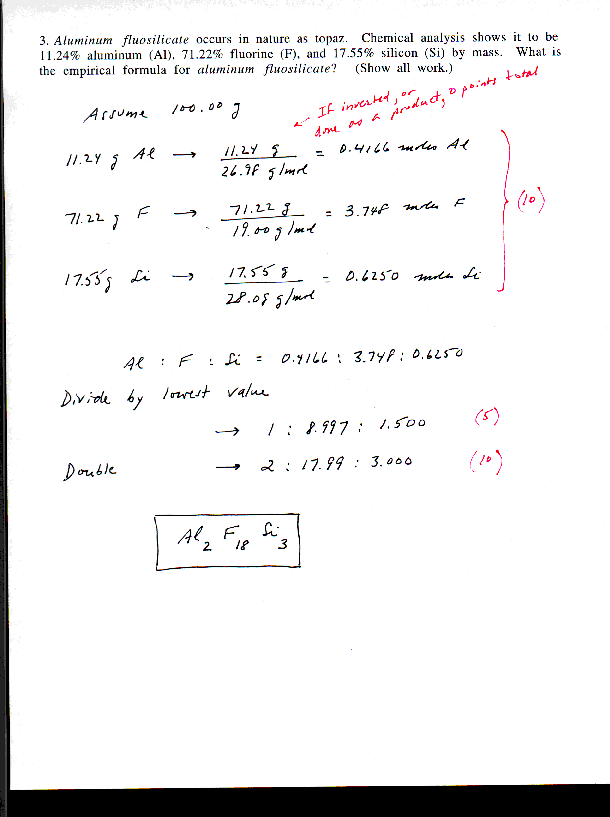 3. Aluminum fluosilicate occurs in nature as topaz. Chemical analysis shows it to be
11.24% aluminum (Al), 71.22% fluorine (F), and 17.55% silicon (Si) by mass. What is
the empirical formula for aluminum fluosilicate? (Show all work.)
Assume 100.00 g
← If inverted, or
done as a product, 0 points total
11.24 g Al → 11.24 g / 26.98 g/mol = 0.4166 moles Al
71.22 g F → 71.22 g / 19.00 g/mol = 3.748 moles F
(10)
17.55 g Si → 17.55 g / 28.08 g/mol = 0.6250 moles Si
Al : F : Si = 0.4166 : 3.748 : 0.6250
Divide by lowest value
→ 1 : 8.997 : 1.500 (5)
Double → 2 : 17.99 : 3.000 (10)
Al2 F18 Si3